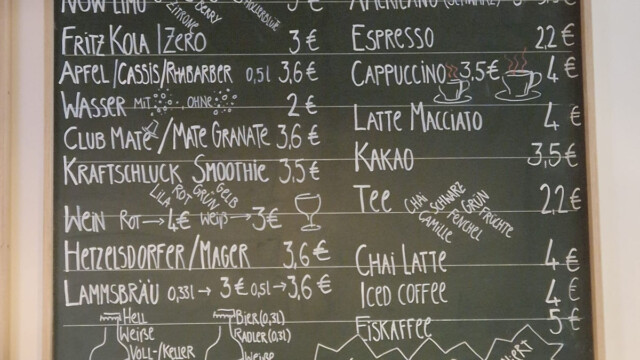 NOW LIMO 3 €
ZITRONE BERRY
FRITZ KOLA / ZERO 3 €
APFEL/CASSIS/RHABARBER 0,5l 3,6 €
WASSER MIT OHNE 2 €
CLUB MATE / MATE GRANATE 3,6 €
KRAFTSCHLUCK SMOOTHIE 3,5 €
LILA ROT GRÜN GELB
WEIN ROT → 4 € WEIß → 3 €
HETZELSDORFER/MAGER 3,6 €
LAMMSBRÄU 0,33l → 3 € 0,5l → 3,6 €
HELL
WEIßE
VOLL-/KELLER
BIER (0,3l)
RADLER (0,3l)
WEIßE
AMERICANO (SCHWARZ)
ESPRESSO 2,2 €
CAPPUCCINO 3,5 € 4 €
LATTE MACCIATO 4 €
KAKAO 3,5 €
TEE 2,2 €
CHAI SCHWARZ GRÜN
CAMILLE FENCHEL FRÜCHTE
CHAI LATTE 4 €
ICED COFFEE 4 €
EISKAFFEE 5 €